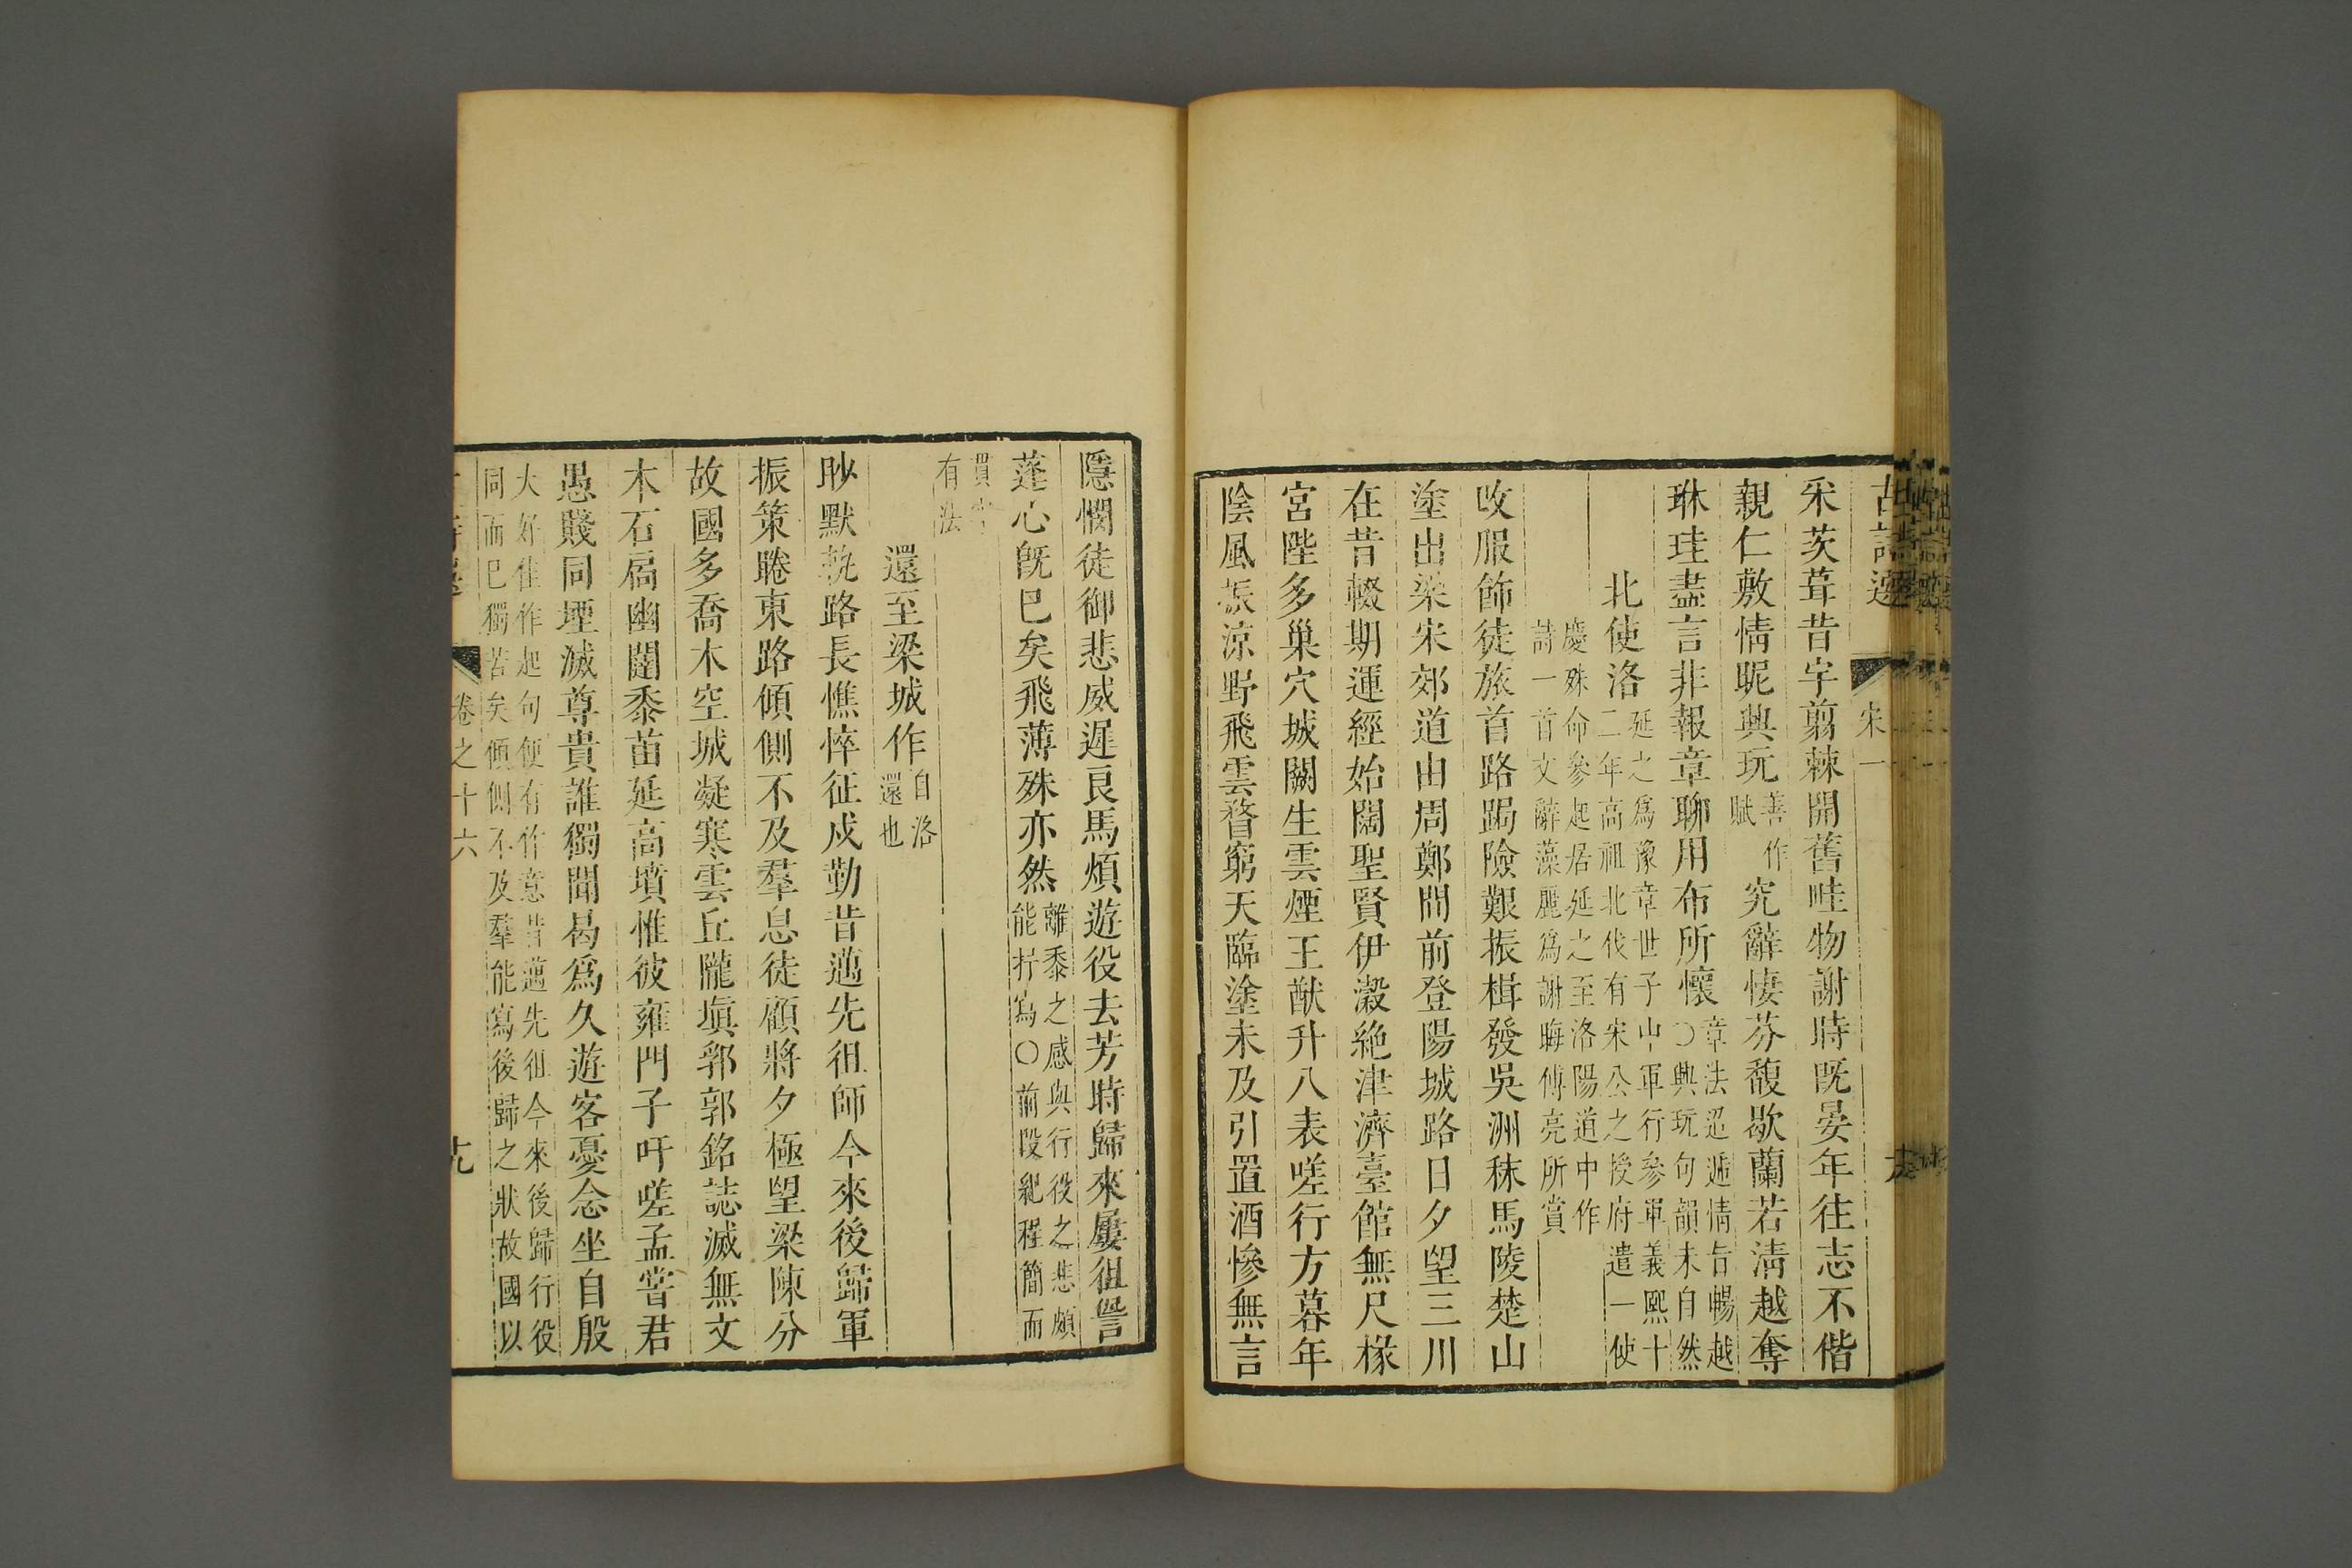 古詩選 宋一
采茨葺昔宇翦棘開舊畦物謝時旣晏年往志不偕
親仁敷情昵興玩善作賦究辭悽芬馥歇蘭若淸越奪
琳珪盡言非報章聊用布所懷章法迢遞情旨暢越〇興玩句韻未自然
北使洛延之爲豫章世子中軍行參軍義熙十二年高祖北伐有宋公之授府遣一使
慶殊命參起居延之至洛陽道中作詩一首文辭藻麗爲謝晦傅亮所賞
改服飭徒旅首路跼險艱振楫發吳洲秣馬陵楚山
塗出梁宋郊道由周鄭間前登陽城路日夕望三川
在昔輟期運經始闊聖賢伊瀔絶津濟臺館無尺椽
宮陛多巢穴城闕生雲煙王猷升八表嗟行方暮年
陰風振涼野飛雲瞀窮天臨塗未及引置酒慘無言
隱憫徒御悲威遲良馬煩遊役去芳時歸來屢徂諐
蓬心旣已矣飛薄殊亦然離黍之感與行役之悲頗能抒寫〇前段紀程簡而
有法
還至梁城作自洛還也
眇默軌路長憔悴征戍勤昔邁先徂師今來後歸軍
振策睠東路傾側不及羣息徒顧將夕極望梁陳分
故國多喬木空城凝寒雲丘隴塡郛郭銘誌滅無文
木石扃幽闥黍苗延高墳惟彼雍門子吁嗟孟嘗君
愚賤同堙滅尊貴誰獨聞曷爲久遊客憂念坐自殷
大好佳作起句便有作意昔邁先徂今來後歸行役同而已獨苦矣傾側不及羣能寫後歸之狀故國以
卷之十六